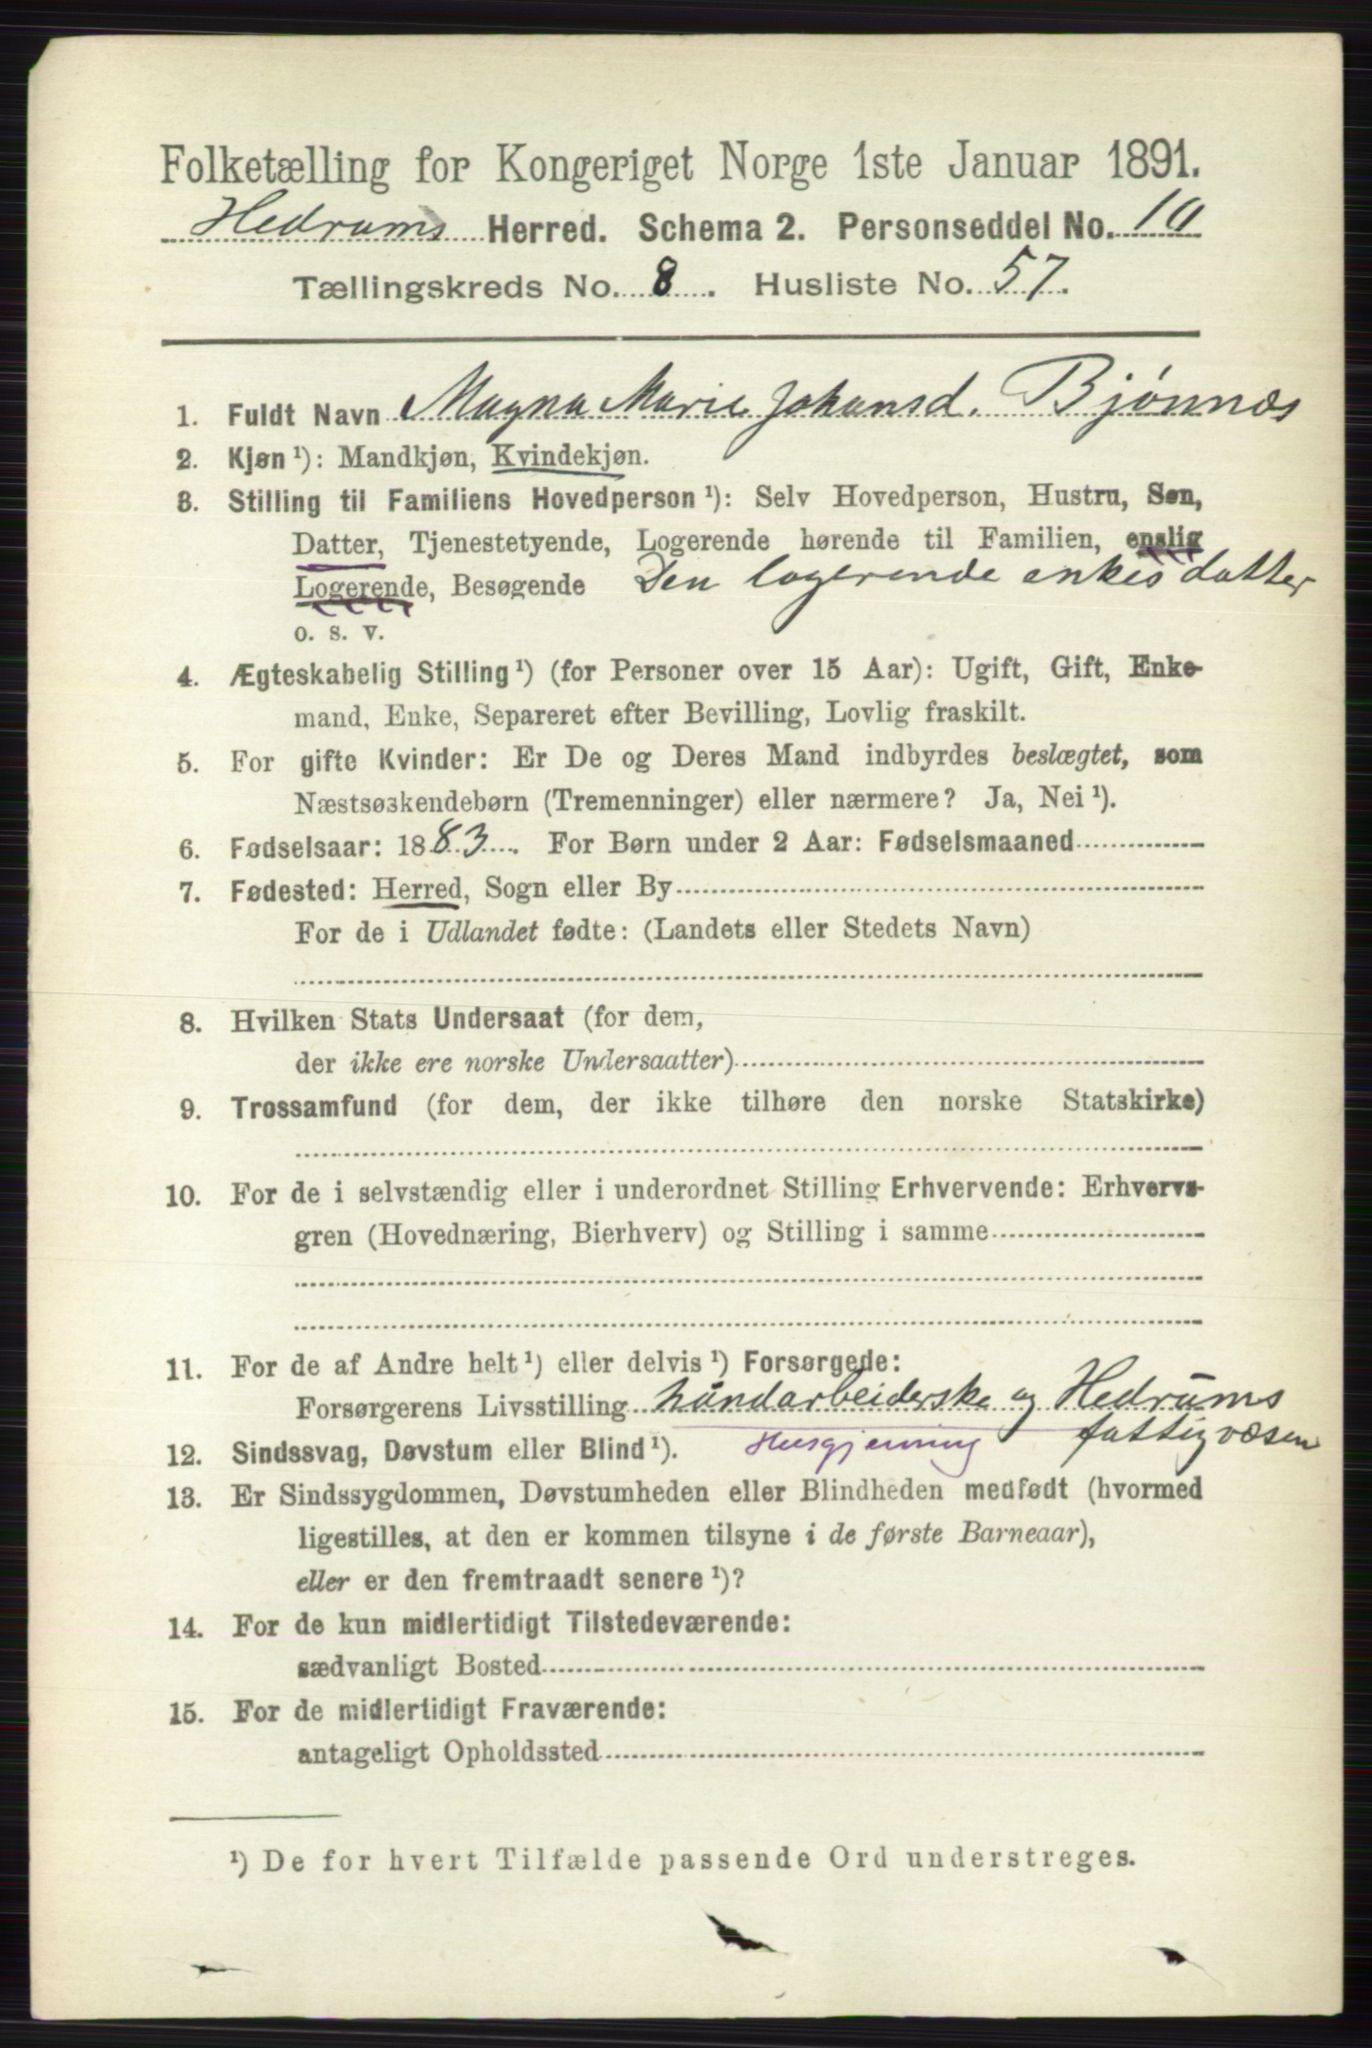 Folketælling for Kongeriget Norge 1ste Januar 1891.
Hedrums Herred. Schema 2. Personseddel No. 10
Tællingskreds No. 8. Husliste No. 57.
1. Fuldt Navn Magna Marie Johansd. Bjønnæs
2. Kjøn ¹): Mandkjøn, Kvindekjøn.
3. Stilling til Familiens Hovedperson ¹): Selv Hovedperson, Hustru, Søn,
Datter, Tjenestetyende, Logerende hørende til Familien, enslig
Logerende, Besøgende Den logerende enkes datter
o. s. v.
4. Ægteskabelig Stilling ¹) (for Personer over 15 Aar): Ugift, Gift, Enke-
mand, Enke, Separeret efter Bevilling, Lovlig fraskilt.
5. For gifte Kvinder: Er De og Deres Mand indbyrdes beslægtet, som
Næstsøskendebørn (Tremenninger) eller nærmere? Ja, Nei ¹).
6. Fødselsaar: 1883. For Børn under 2 Aar: Fødselsmaaned
7. Fødested: Herred, Sogn eller By
For de i Udlandet fødte: (Landets eller Stedets Navn)
8. Hvilken Stats Undersaat (for dem,
der ikke ere norske Undersaatter)
9. Trossamfund (for dem, der ikke tilhøre den norske Statskirke)
10. For de i selvstændig eller i underordnet Stilling Erhvervende: Erhvervs-
gren (Hovednæring, Bierhverv) og Stilling i samme
11. For de af Andre helt ¹) eller delvis ¹) Forsørgede:
Forsørgerens Livsstilling håndarbeiderske og Hedrums
12. Sindssvag, Døvstum eller Blind ¹). Husgjerning fattigvæsen
13. Er Sindssygdommen, Døvstumheden eller Blindheden medfødt (hvormed
ligestilles, at den er kommen tilsyne i de første Barneaar),
eller er den fremtraadt senere ¹)?
14. For de kun midlertidigt Tilstedeværende:
sædvanligt Bosted
15. For de midlertidigt Fraværende:
antageligt Opholdssted
¹) De for hvert Tilfælde passende Ord understreges.